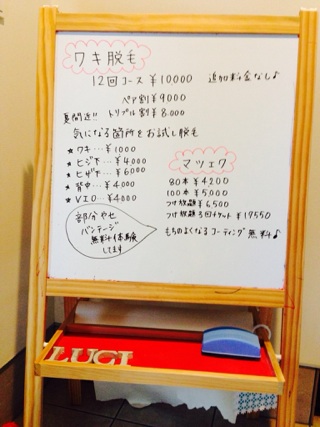 ワキ脱毛
12回コース ¥10000 追加料金なし♪
ペア割 ¥9000
夏間近!! トリプル割 ¥8,000
気になる箇所をお試し脱毛
★ワキ…¥1000
★ヒジ下…¥4,000
★ヒザ下…¥6000
★背中…¥4,000
★VIO…¥4000
部分やせ
バンテージ
無料体験
してます
マツエク
80本 ¥4200
100本 ¥5,000
つけ放題 ¥6500
つけ放題3回チケット ¥17550
もちのよくなるコーティング無料♪
LUCI